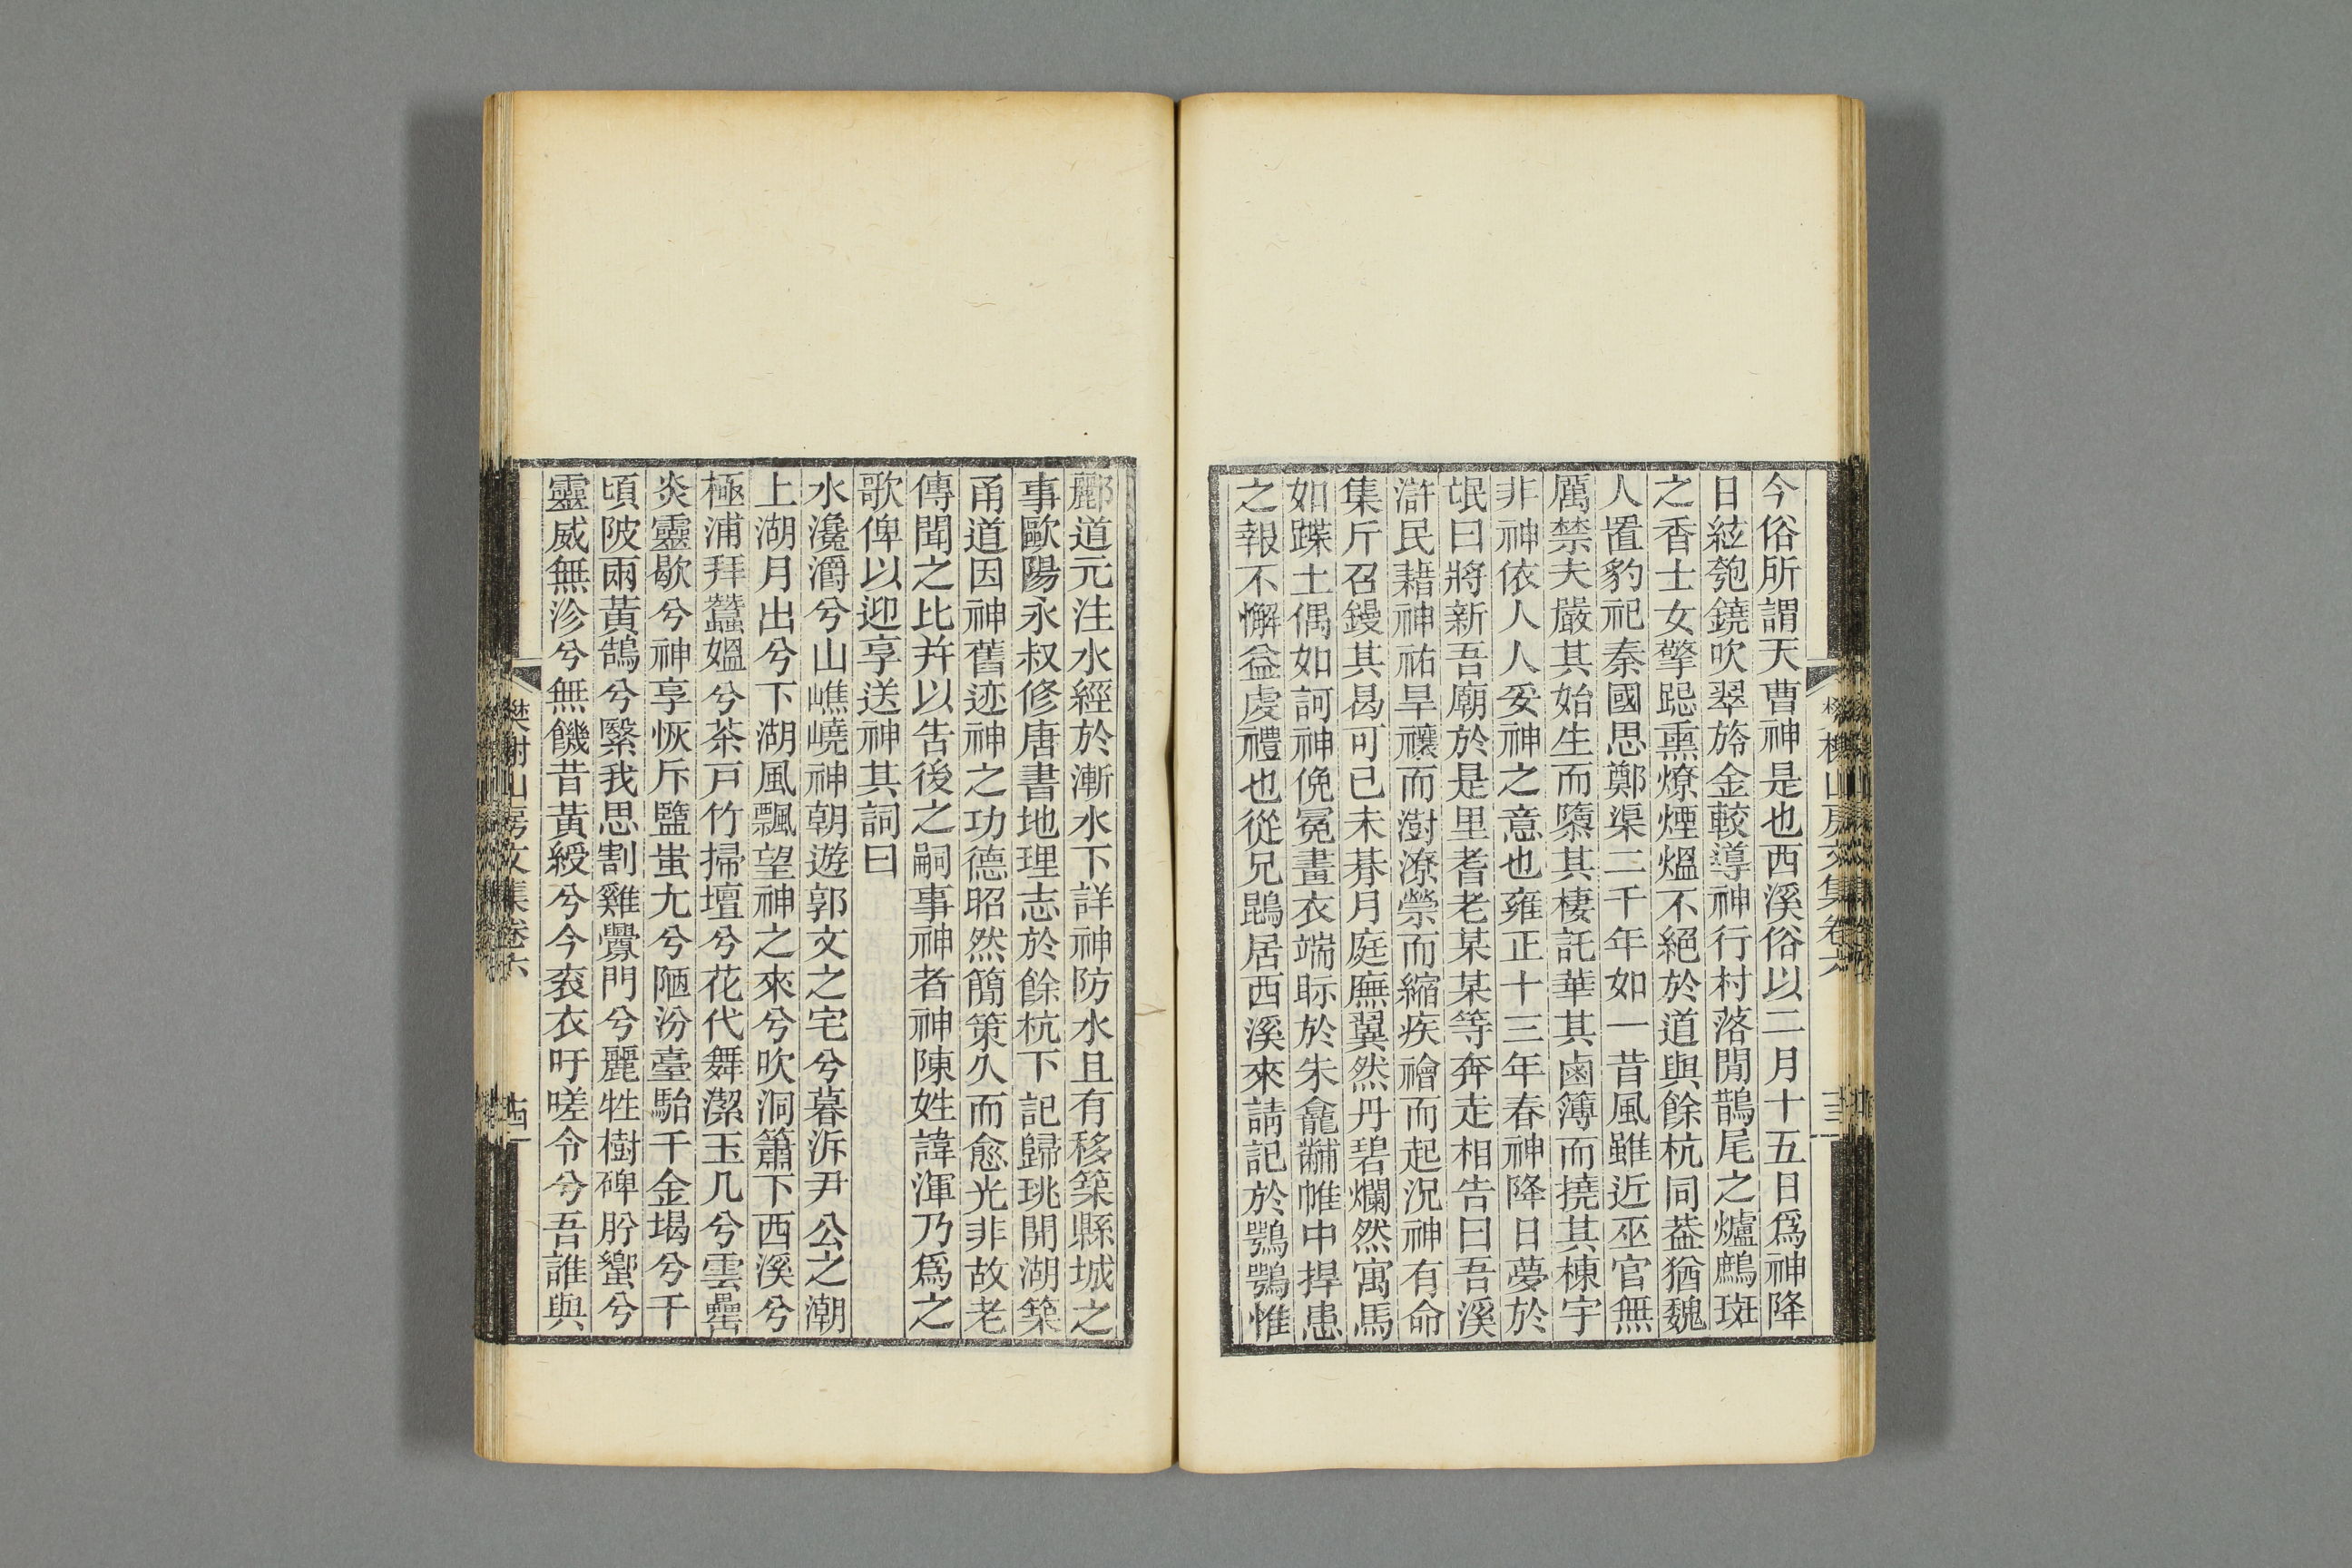 今俗所謂天曹神是也西溪俗以二月十五日爲神降
日絃匏鐃吹翠旍金較導神行村落閒鵲尾之爐鷓斑
之香士女擎跽熏燎煙熅不絕於道與餘杭同葢猶魏
人置豹祀秦國思鄭渠二千年如一昔風雖近巫官無
厲禁夫嚴其始生而隳其棲託華其鹵簿而撓其棟宇
非神依人人妥神之意也雍正十三年春神降日夢於
氓曰將新吾廟於是里耆老某某等奔走相告曰吾溪
滸民藉神祐旱禳而澍潦禜而縮疾禬而起況神有命
集斤召鏝其曷可已未朞月庭廡翼然丹碧爛然寓馬
如蹀土偶如訶神俛冕畫衣端眎於朱龕黼帷中捍患
之報不懈益虔禮也從兄鶋居西溪來請記於鶚鶚惟
樊榭山房文集卷六
十三
酈道元注水經於漸水下詳神防水且有移築縣城之
事歐陽永叔修唐書地理志於餘杭下記歸珧開湖築
甬道因神舊迹神之功德昭然簡策久而愈光非故老
傳聞之比并以告後之嗣事神者神陳姓諱渾乃爲之
歌俾以迎享送神其詞曰
水瀺灂兮山嶕嶢神朝遊郭文之宅兮暮泝尹公之潮
上湖月出兮下湖風飄望神之來兮吹洞簫下西溪兮
極浦拜蠶媼兮茶戸竹掃壇兮花代舞潔玉几兮雲罍
炎靈歇兮神享恢斥鹽蚩尤兮陋汾臺駘千金堨兮千
頃陂兩黃鵠兮繄我思割雞釁門兮麗牲樹碑肸蠁兮
靈威無沴兮無饑昔黃綬兮今衮衣吁嗟令兮吾誰與
樊榭山房文集卷六
十四